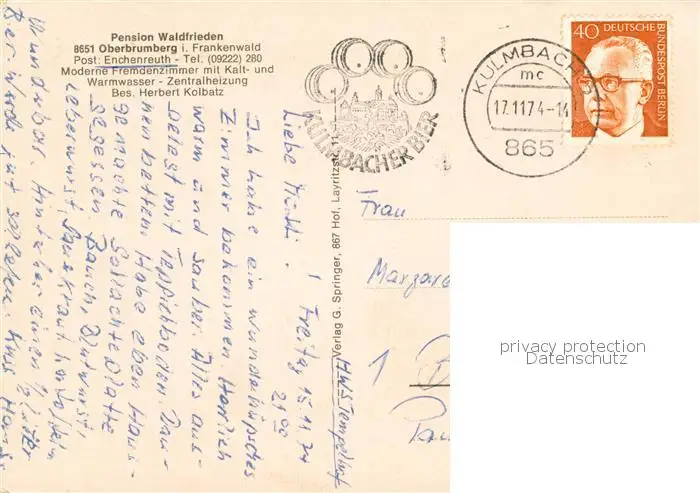 Pension Waldfrieden
8651 Oberbrumberg i. Frankenwald
Post: Enchenreuth - Tel. (09222) 280
Moderne Fremdenzimmer mit Kalt- und
Warmwasser - Zentralheizung
Bes. Herbert Kolbatz
KULMBACHER BIER
KULMBACH
mc
17.11.74-14
865
40 DEUTSCHE
BUNDESPOST BERLIN
Verlag G. Springer, 867 Hof, Layritzstr
Freitag 15.11.74
Liebe
Ich habe ein wunderhübsches
Zimmer bekommen. Herrlich
warm und sauber. Alles aus-
gelegt mit Teppichboden. Dau-
nenbetten. Habe eben Haus-
gemachte Schlachteplatte
gegessen. Bauch, Blutwurst,
Leberwurst, Sauerkraut
und Brot. Hinterher einen 1/2 Liter
Bier. Werde gut schlafen. Kuss
HWS Tempelhof
Frau
Margar
1
privacy protection
Datenschutz